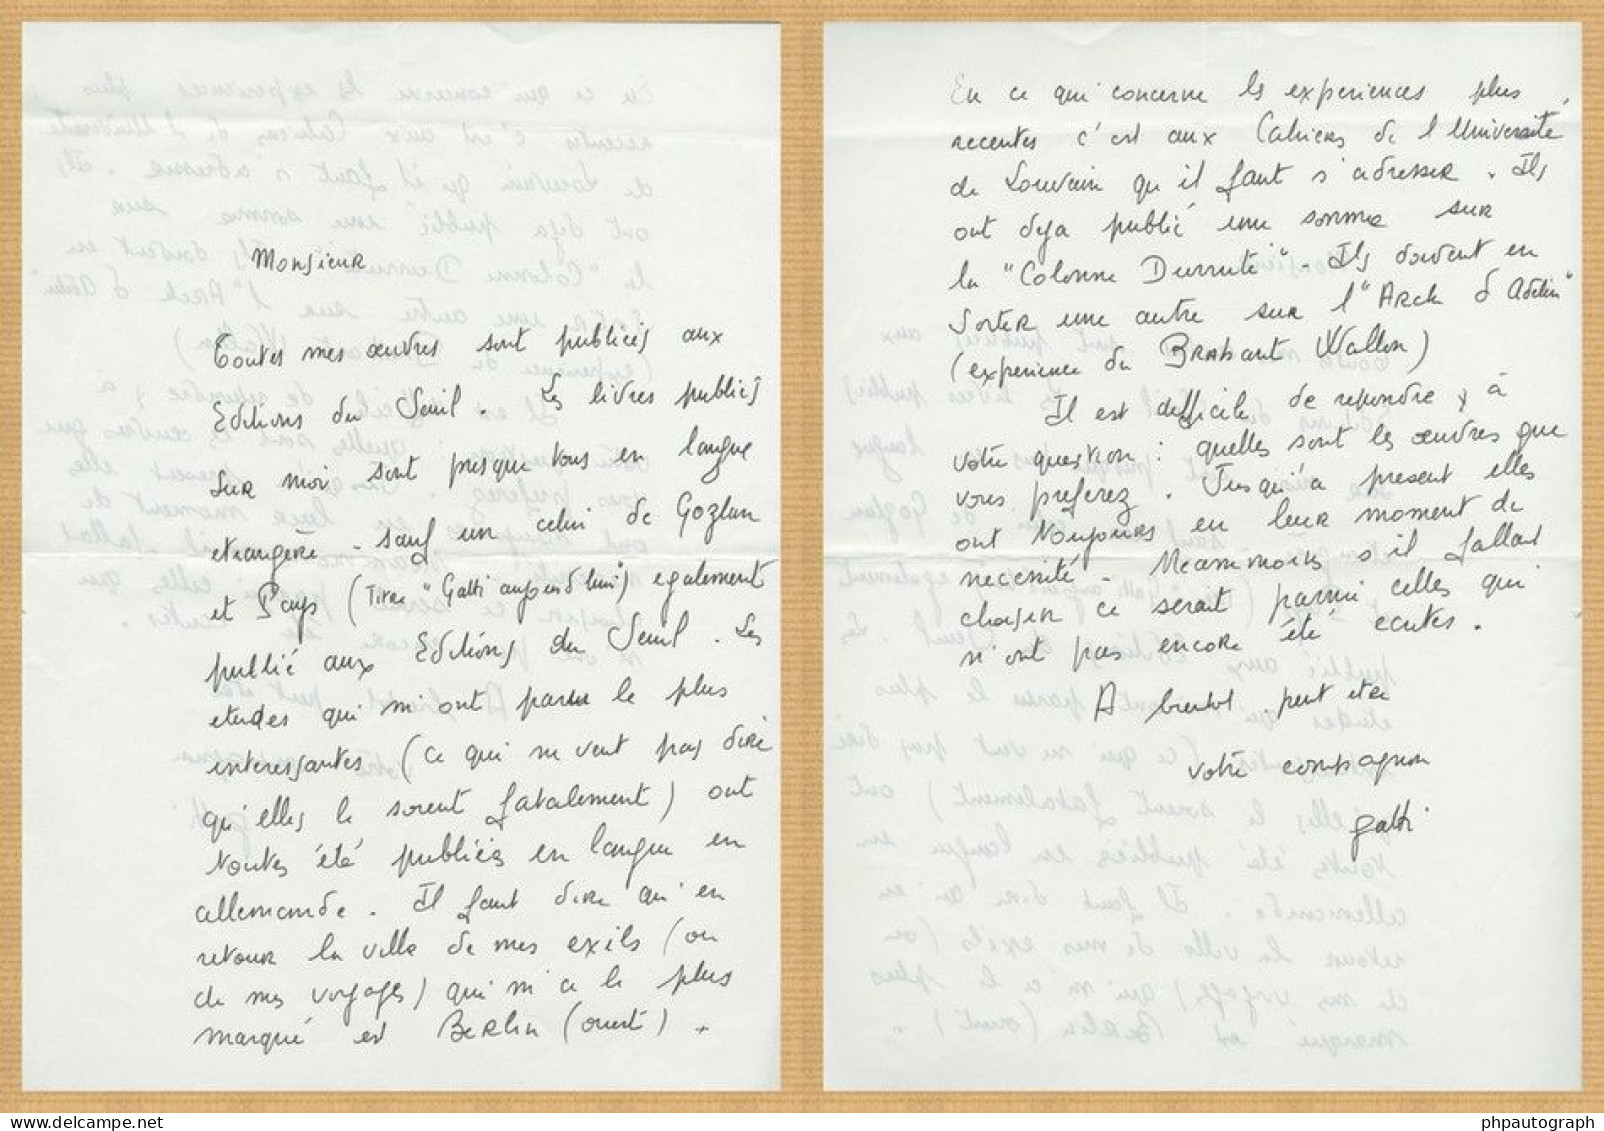 Monsieur
Toutes mes œuvres sont publiées aux
Editions du Seuil. Les livres publiés
sur moi sont presque tous en langue
etrangère - sauf un celui de Gozlan
et Pays (Titre "Gatti aujourd'hui") egalement
publié aux Editions du Seuil. Les
etudes qui m'ont paru le plus
interessantes (ce qui ne veut pas dire
qu'elles le soient fatalement) ont
toutes été publiées en langue en
allemande. Il faut dire qu'en
retour la ville de mes exils (ou
de mes voyages) qui m'a le plus
marqué est Berlin (ouest).
En ce qui concerne les experiences plus
recentes c'est aux Cahiers de l'Université
de Louvain qu'il faut s'adresser. Ils
ont deja publié une somme sur
la "Colonne Durruti" - Ils doivent en
sortir une autre sur l'"Arche d'Adelin"
(experience du Brabant Wallon)
Il est difficile de repondre à
votre question : quelles sont les œuvres que
vous preferez. Jusqu'à present elles
ont toujours en leur moment de
necessité - Neammoins s'il fallait
choisir ce serait parmi celles qui
n'ont pas encore été ecrites.
A bientot peut etre
votre compagnon
gatti
phpautograph